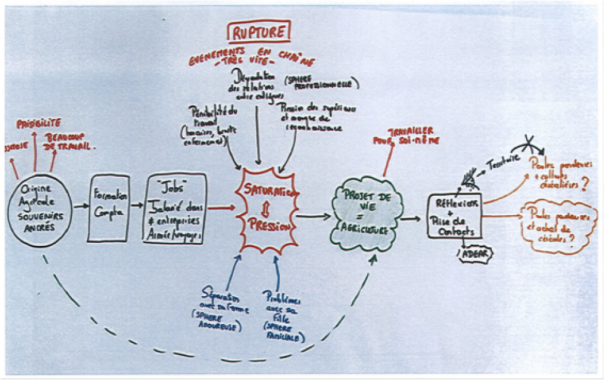 RUPTURE
EVENEMENTS EN CHAÎNE
- TRÈS VITE -
Dégradation
des relations
entre collègues
(SPHERE
PROFESSIONNELLE)
Pénibilité du
travail
(horaires, bruits
Pression des supérieurs
et manque de
reconnaissance
PAISIBILITÉ
BEAUCOUP
DE TRAVAIL.
Origine
Agricole
SOUVENIRS
ANCRÉS
Formation
Compta
"Jobs"
Salarié dans
≠ entreprises
SATURATION
PRESSION
PROJET DE
VIE
=
AGRICULTURE
TRAVAILLER
POUR SOI-MÊME
Réflexion
+
Prise de
Contacts
ADEAR
Territoire
Poules pondeuses
+ cultures
céréalières ?
Poules pondeuses
et achat de
céréales ?
Séparation
avec sa femme
(SPHERE
AMOUREUSE)
Problèmes
avec sa
fille
(SPHERE
FAMILIALE)